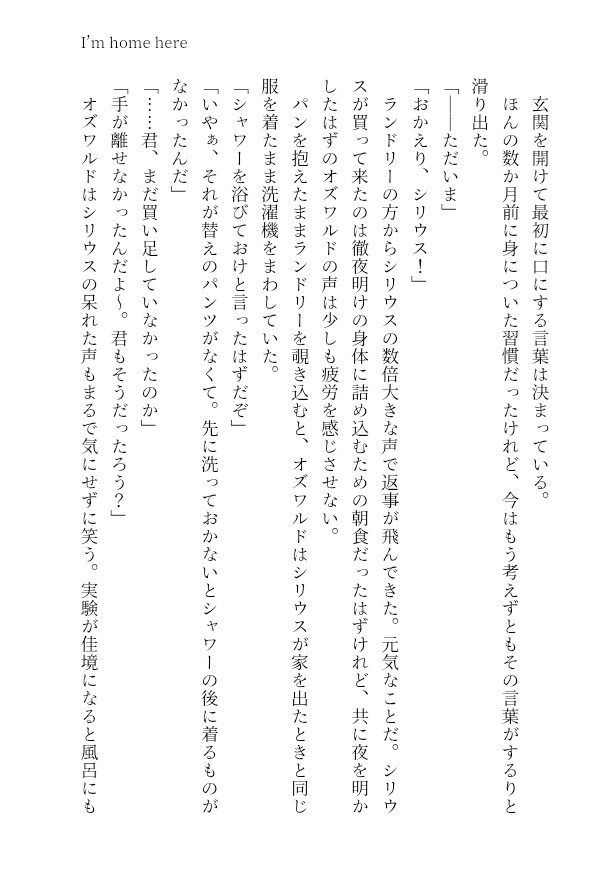 I’m home here
　玄関を開けて最初に口にする言葉は決まっている。
　ほんの数か月前に身についた習慣だったけれど、今はもう考えずともその言葉がするりと
滑り出た。
「――ただいま」
「おかえり、シリウス！」
　ランドリーの方からシリウスの数倍大きな声で返事が飛んできた。元気なことだ。シリウ
スが買って来たのは徹夜明けの身体に詰め込むための朝食だったはずけれど、共に夜を明か
したはずのオズワルドの声は少しも疲労を感じさせない。
　パンを抱えたままランドリーを覗き込むと、オズワルドはシリウスが家を出たときと同じ
服を着たまま洗濯機をまわしていた。
「シャワーを浴びておけと言ったはずだぞ」
「いやぁ、それが替えのパンツがなくて。先に洗っておかないとシャワーの後に着るものが
なかったんだ」
「……君、まだ買い足していなかったのか」
「手が離せなかったんだよ～。君もそうだったろう？」
　オズワルドはシリウスの呆れた声もまるで気にせずに笑う。実験が佳境になると風呂にも